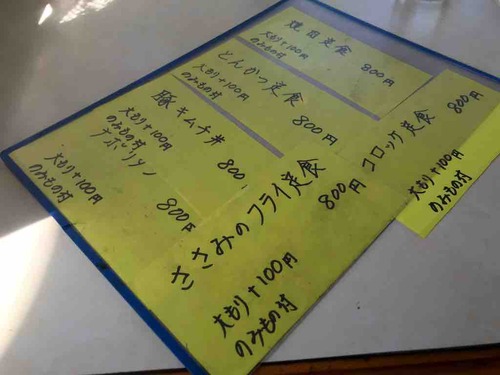 焼肉定食 800円
大もり+100円
のみもの付
とんかつ定食 800円
大もり+100円
のみもの付
豚キムチ丼 800
大もり+100円
のみもの付
ナポリタン 800円
大もり+100円
のみもの付
ささみのフライ定食 800円
大もり+100円
のみもの付
コロッケ定食 800円
大もり+100円
のみもの付